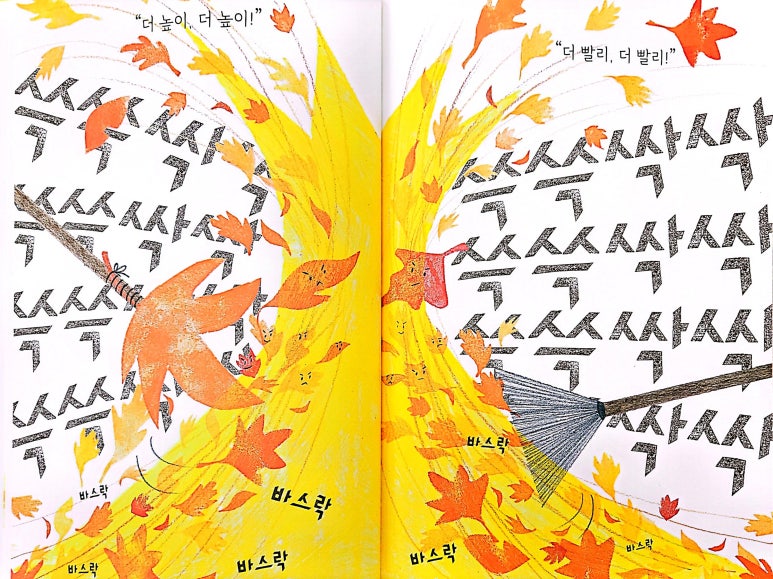 “더 높이, 더 높이!”
쓱쓱싹싹
쓱쓱싹싹
쓱쓱
쓱쓱
바스락
바스락
바스락
바스락
“더 빨리, 더 빨리!”
쓱쓱싹싹
쓱쓱싹싹
쓱쓱싹싹
싹싹
바스락
바스락
바스락